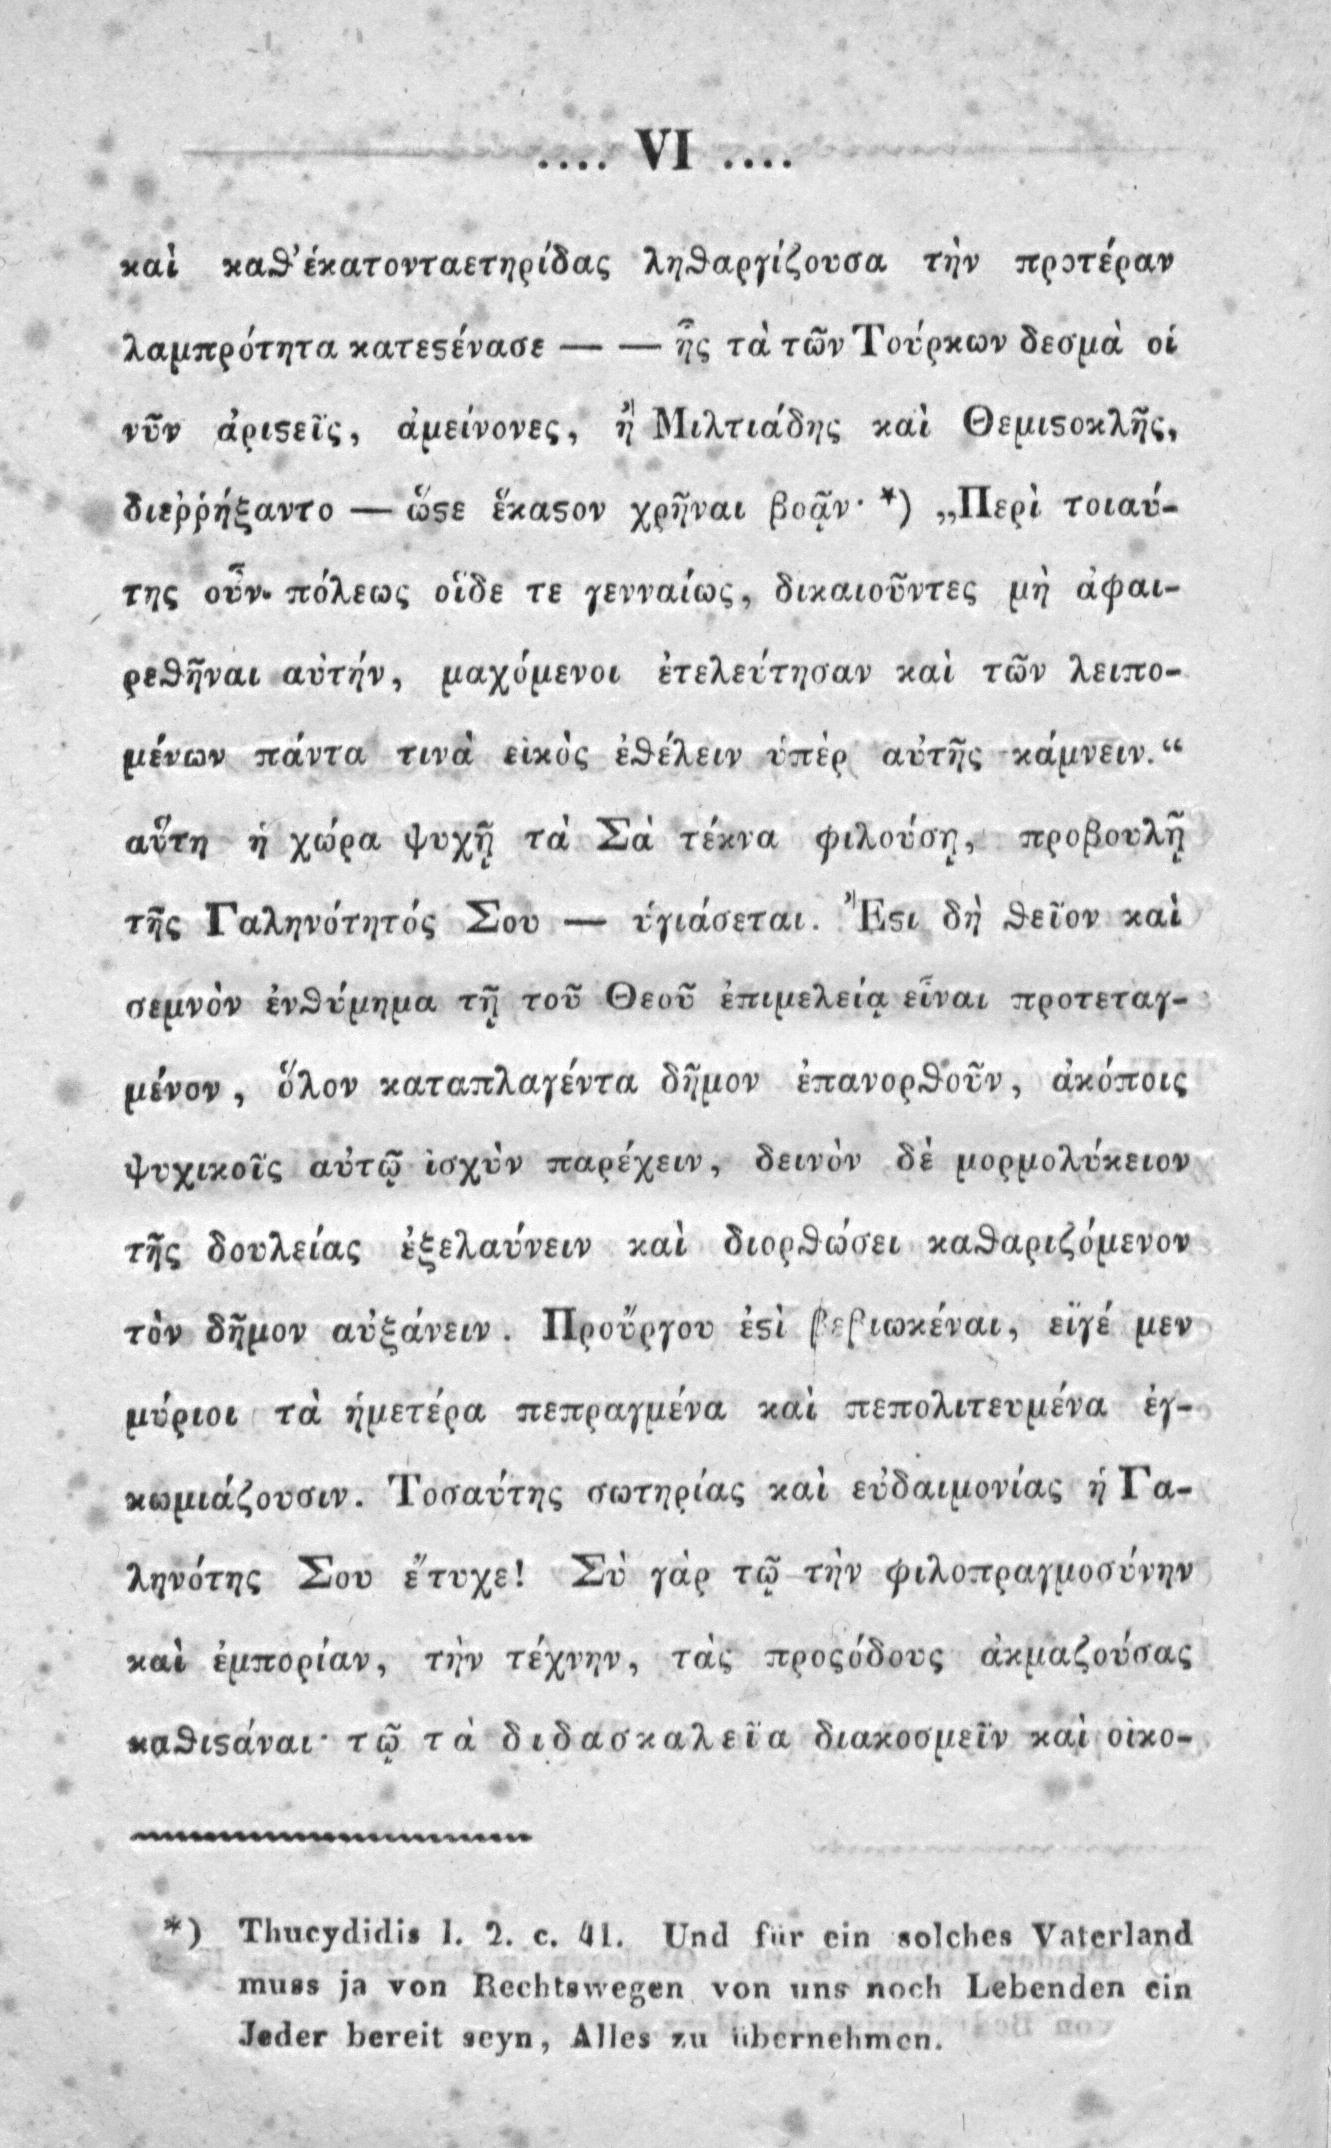 .... VI ....
καὶ καϑ’ ἑκατονταετηρίδας ληϑαργίζουσα τὴν προτέραν
λαμπρότητα κατεϛένασε — — ἧς τὰ τῶν Τούρκων δεσμὰ οἱ
νῦν ἀριϛεῖς, ἀμείνονες, ἢ Μιλτιάδης καὶ Θεμιϛοκλῆς,
διεῤῥήξαντο — ὥϛε ἕκαϛον χρῆναι βοᾷν· *) „Περὶ τοιαύ-
της οὖν πόλεως οἵδε τε γενναίως, δικαιοῦντες μὴ ἀφαι-
ρεϑῆναι αὐτήν, μαχόμενοι ἐτελεύτησαν καὶ τῶν λειπο-
μένων πάντα τινὰ εἰκὸς ἐϑέλειν ὑπὲρ αὐτῆς κάμνειν.“
αὕτη ἡ χώρα ψυχῇ τὰ Σὰ τέκνα φιλούσῃ, προβουλῇ
τῆς Γαληνότητός Σου — ὑγιάσεται. Ἔϛι δὴ ϑεῖον καὶ
σεμνὸν ἐνϑύμημα τῇ τοῦ Θεοῦ ἐπιμελείᾳ εἶναι προτεταγ-
μένον, ὅλον καταπλαγέντα δῆμον ἐπανορϑοῦν, ἀκόποις
ψυχικοῖς αὐτῷ ἰσχὺν παρέχειν, δεινὸν δὲ μορμολύκειον
τῆς δουλείας ἐξελαύνειν καὶ διορϑώσει καϑαριζόμενον
τὸν δῆμον αὐξάνειν. Προὔργου ἐϛὶ βεβιωκέναι, εἴγέ μεν
μύριοι τὰ ἡμετέρα πεπραγμένα καὶ πεπολιτευμένα ἐγ-
κωμιάζουσιν. Τοσαύτης σωτηρίας καὶ εὐδαιμονίας ἡ Γα-
ληνότης Σου ἔτυχε! Σὺ γὰρ τῷ τὴν φιλοπραγμοσύνην
καὶ ἐμπορίαν, τὴν τέχνην, τὰς προςόδους ἀκμαζούσας
καϑιϛάναι· τῷ τὰ διδασκαλεῖα διακοσμεῖν καὶ οἰκο-
*) Thucydidis l. 2. c. 41. Und für ein solches Vaterland
muss ja von Rechtswegen von uns noch Lebenden ein
Jeder bereit seyn, Alles zu übernehmen.